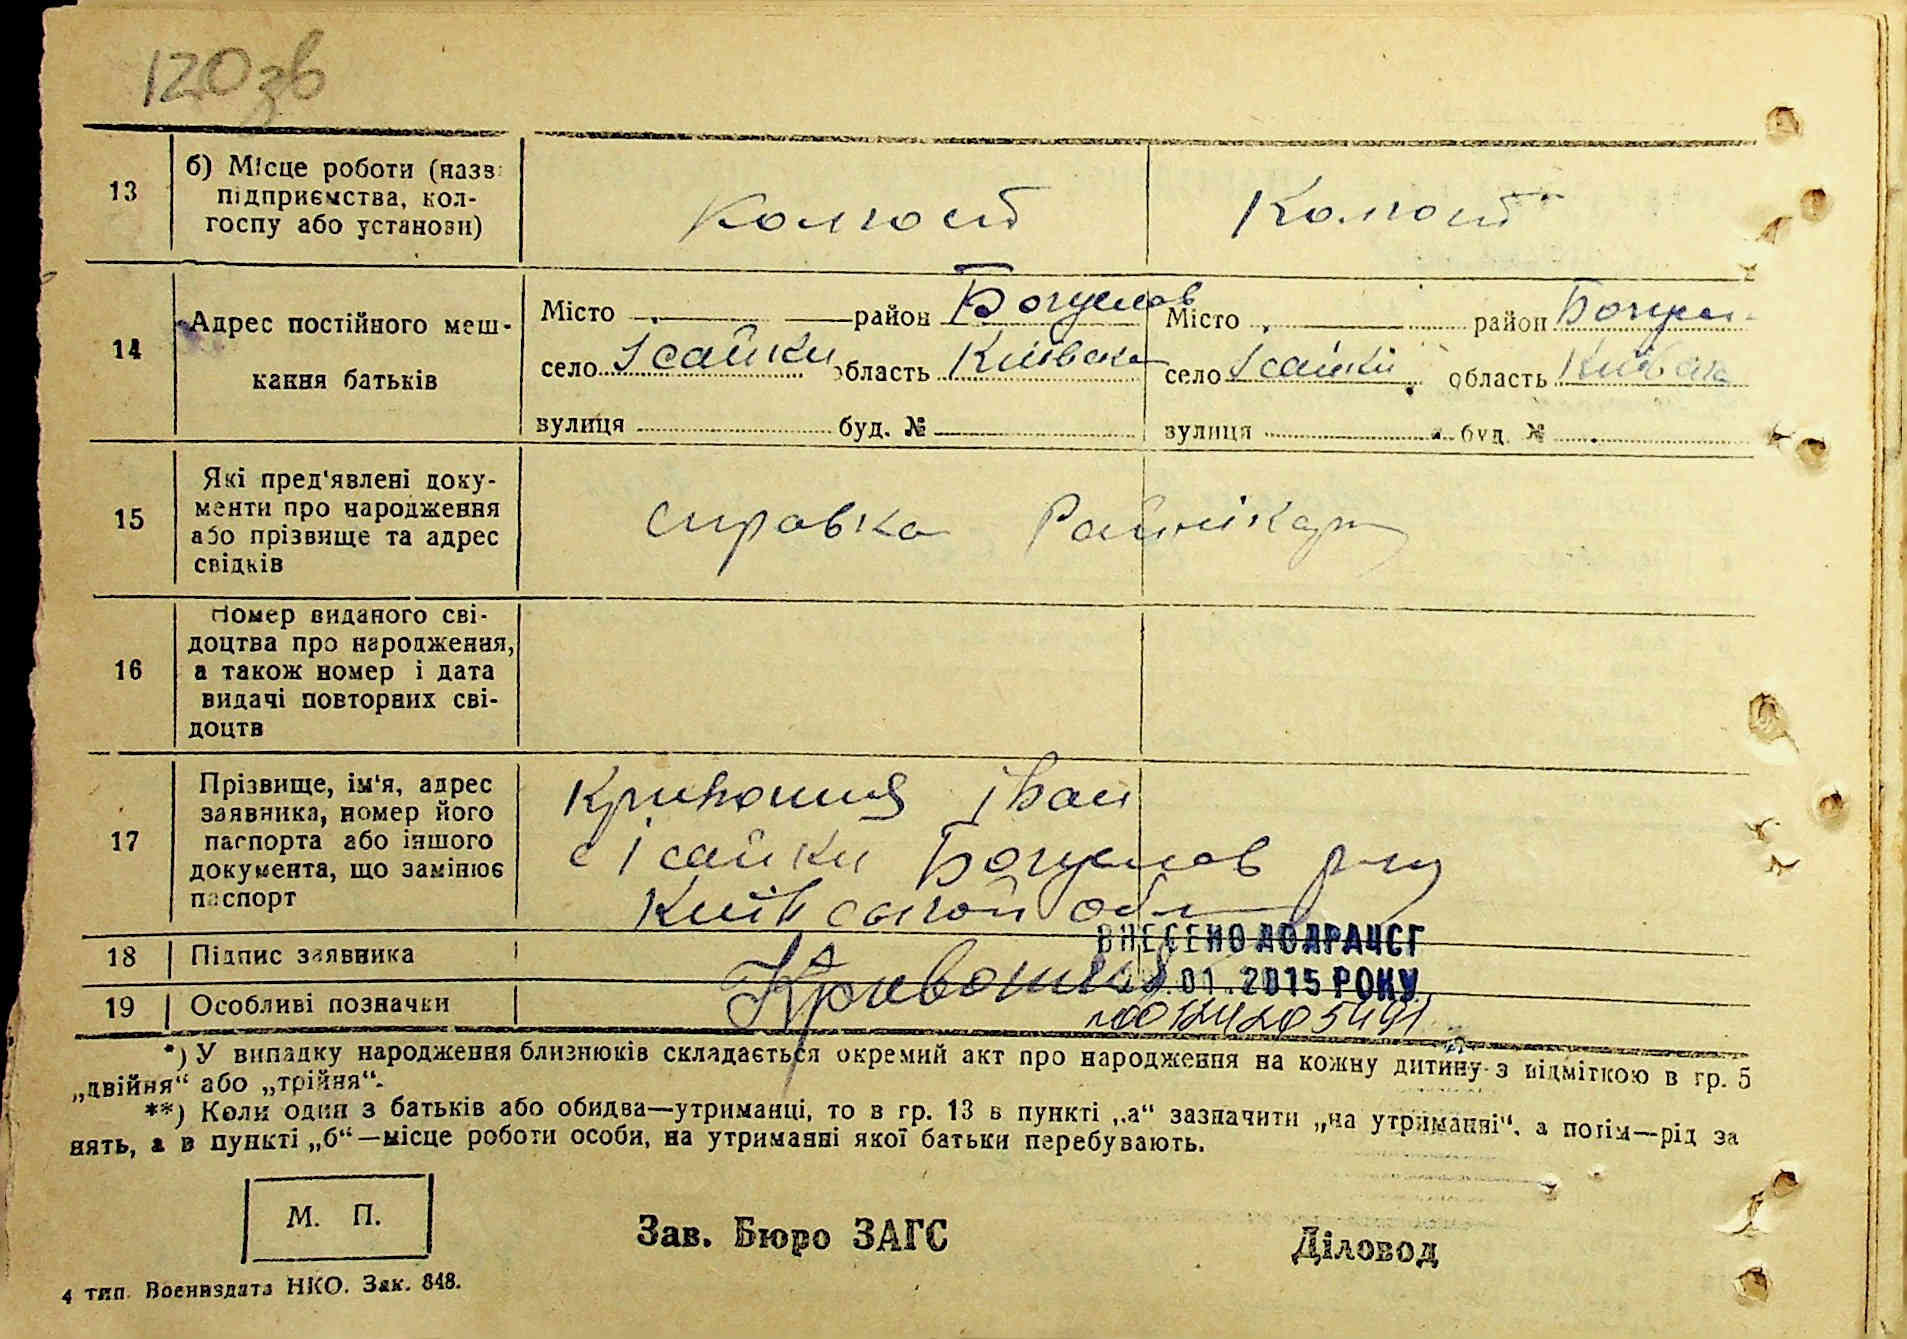 120зв
13
б) Місце роботи (назв
підприємства, кол-
госпу або установи)
Колгосп
Колгосп
14
Адрес постійного меш-
кання батьків
Місто район Богуслав
село Ісайки область Київска
вулиця буд. №
Місто район Богусл
село Ісайки область Київска
вулиця буд. №
15
Які пред'явлені доку-
менти про народження
або прізвище та адрес
свідків
справка
16
Номер виданого сві-
доцтва про народження,
а також номер і дата
видачі повторних сві-
доцтв
17
Прізвище, ім'я, адрес
заявника, номер його
паспорта або іншого
документа, що замінює
паспорт
Кривошия Іван
с Ісайки Богуслав р-ну
Київської обл
18
Підпис заявника
19
Особливі позначки
ВНЕСЕНО ДО ДРАЦСГ
01.2015 РОКУ
*) У випадку народження близнюків складається окремий акт про народження на кожну дитину з відміткою в гр. 5
„двійня“ або „трійня“.
**) Коли один з батьків або обидва—утриманці, то в гр. 13 в пункті „а“ зазначити „на утриманні“, а потім—рід за
нять, а в пункті „б“—місце роботи особи, на утриманні якої батьки перебувають.
М. П.
Зав. Бюро ЗАГС
Діловод
4 тип. Воениздата НКО. Зак. 848.